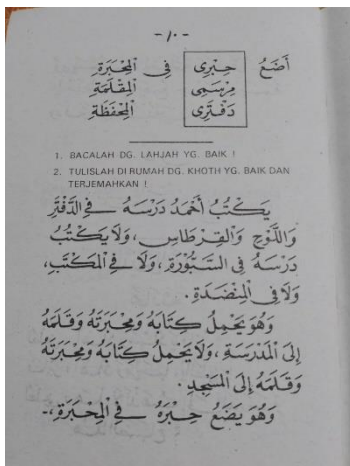 - ١٠ -
أَضَعُ حِبْرِى فِى الْمِحْبَرَةِ
مِرْسَمِى الْمِقْلَمَةِ
دَفْتَرِى الْمِحْفَظَةِ
1. BACALAH DG. LAHJAH YG. BAIK !
2. TULISLAH DI RUMAH DG. KHOTH YG. BAIK DAN
TERJEMAHKAN !
يَكْتُبُ أَحْمَدُ دَرْسَهُ فِى الدَّفْتَرِ
وَاللَّوْحِ وَالْقِرْطَاسِ، وَلَا يَكْتُبُ
دَرْسَهُ فِى السَّبُّورَةِ، وَلَا فِى الْمَكْتَبِ،
وَلَا فِى الْمِنْضَدَةِ.
وَهُوَ يَحْمِلُ كِتَابَهُ وَمِحْبَرَتَهُ وَقَلَمَهُ
إِلَى الْمَدْرَسَةِ، وَلَا يَحْمِلُ كِتَابَهُ وَمِحْبَرَتَهُ
وَقَلَمَهُ إِلَى الْمَسْجِدِ.
وَهُوَ يَضَعُ حِبْرَهُ فِى الْمِحْبَرَةِ،-